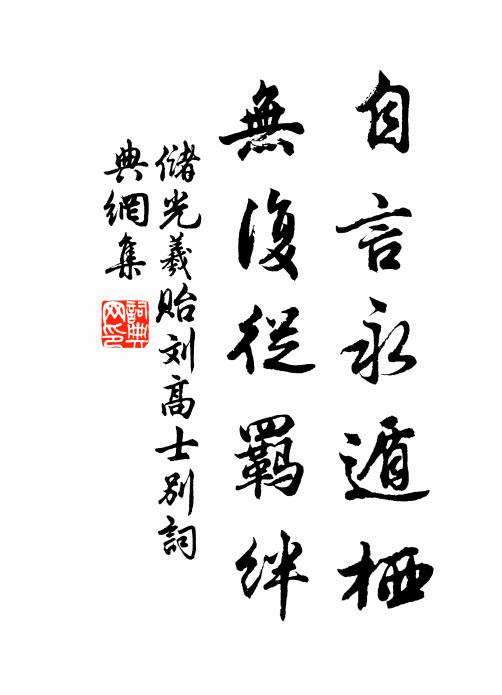 自言永遁栖
無復從羈絆
儲光羲貽刘高士别詞
典網集
詞典網印